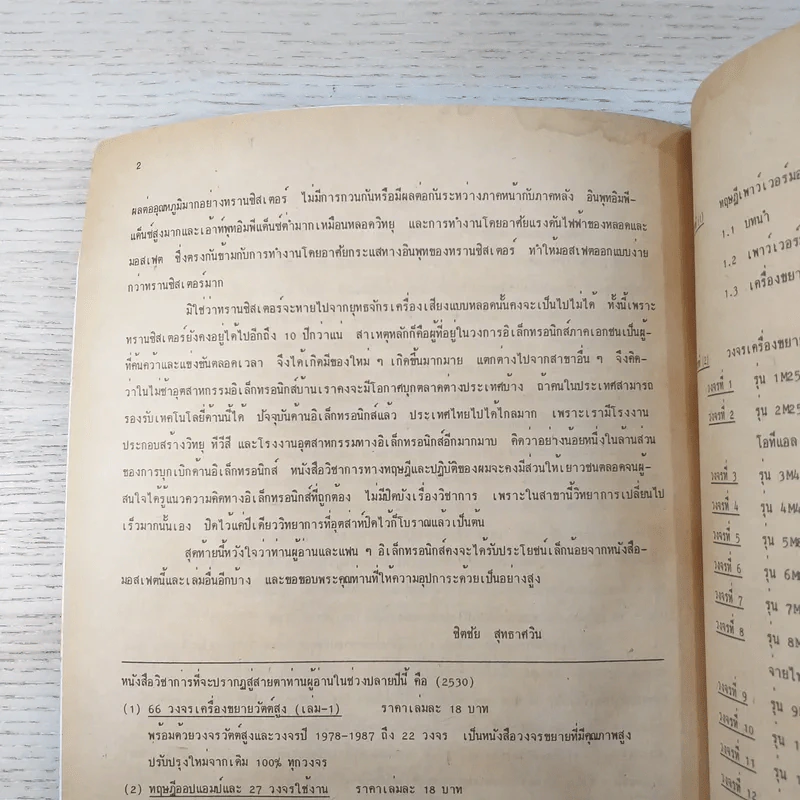 2
ผลต่ออุณหภูมิมากอย่างทรานซิสเตอร์ ไม่มีการกวนกันหรือมีผลต่อกันระหว่างภาคหน้ากับภาคหลัง อินพุทอิมพี-
แด็นซ์สูงมากและเอ้าท์พุทอิมพีแด็นซ์ต่ำมากเหมือนหลอดวิทยุ และการทำงานโดยอาศัยแรงดันไฟฟ้าของหลอดและ
มอสเฟต ซึ่งตรงกันข้ามกับการทำงานโดยอาศัยกระแสทางอินพุทของทรานซิสเตอร์ ทำให้มอสเฟตออกแบบง่าย
กว่าทรานซิสเตอร์มาก
มิใช่ว่าทรานซิสเตอร์จะหายไปจากยุทธจักรเครื่องเสียงแบบหลอดนั้นคงจะเป็นไปไม่ได้ ทั้งนี้เพราะ
ทรานซิสเตอร์ยังคงอยู่ได้ไปอีกถึง 10 ปีกว่าแน่ สาเหตุหลักก็คือผู้ที่อยู่ในวงการอิเล็กทรอนิกส์ภาคเอกชนเป็นผู้-
ที่ค้นคว้าและแข่งขันตลอดเวลา จึงได้เกิดมีของใหม่ ๆ เกิดขึ้นมากมาย แตกต่างไปจากสาขาอื่น ๆ จึงคิด-
ว่าในไม่ช้าอุตสาหกรรมอิเล็กทรอนิกส์บ้านเราคงจะมีโอกาศบุกตลาดต่างประเทศบ้าง ถ้าคนในประเทศสามารถ
รองรับเทคโนโลยี่ด้านนี้ได้ ปัจจุบันด้านอิเล็กทรอนิกส์แล้ว ประเทศไทยไปได้ไกลมาก เพราะเรามีโรงงาน
ประกอบสร้างวิทยุ ทีวีสี และโรงงานอุตสาหกรรมทางอิเล็กทรอนิกส์อีกมากมาบ คิดว่าอย่างน้อยหนึ่งในล้านส่วน
ของการบุกเบิกด้านอิเล็กทรอนิกส์ หนังสือวิชาการทางทฤษฎีและปฏิบัติของผมจะคงมีส่วนให้เยาวชนตลอดจนผู้-
สนใจได้รู้แนวความคิดทางอิเล็กทรอนิกส์ที่ถูกต้อง ไม่มีปิดบังเรื่องวิชาการ เพราะในสาขานี้วิทยาการเปลี่ยนไป
เร็วมากนั้นเอง ปิดไว้แค่ปีเดียววิทยาการที่อุตส่าห์ปิดไว้ก็โบราณแล้วเป็นต้น
สุดท้ายนี้หวังใจว่าท่านผู้อ่านและแฟน ๆ อิเล็กทรอนิกส์คงจะได้รับประโยชน์เล็กน้อยจากหนังสือ-
มอสเฟตนี้และเล่มอื่นอีกบ้าง และขอขอบพระคุณท่านที่ให้ความอุปการะด้วยเป็นอย่างสูง
ชิตชัย สุทธาศวิน
หนังสือวิชาการที่จะปรากฏสู่สายตาท่านผู้อ่านในช่วงปลายปีนี้ คือ (2530)
(1) 66 วงจรเครื่องขยายวัตต์สูง (เล่ม-1) ราคาเล่มละ 18 บาท
พร้อมด้วยวงจรวัตต์สูงและวงจรปี 1978-1987 ถึง 22 วงจร เป็นหนังสือวงจรขยายที่มีคุณภาพสูง
ปรับปรุงใหม่จากเดิม 100% ทุกวงจร
(2) ทฤษฎีออปแอมป์และ 27 วงจรใช้งาน ราคาเล่มละ 18 บาท
ทฤษฎีเพาว์เวอร์มอ
1.1 บทนำ
1.2 เพาว์เวอร์
1.3 เครื่องขยาย
วงจรเครื่องขยาย
วงจรที่ 1 รุ่น 1M25
วงจรที่ 2 รุ่น 2M25
โอทีแอล
วงจรที่ 3 รุ่น 3M4
วงจรที่ 4 รุ่น 4M4
วงจรที่ 5 รุ่น 5M
วงจรที่ 6 รุ่น 6M
วงจรที่ 7 รุ่น 7M
วงจรที่ 8 รุ่น 8M
จ่ายไฟ
วงจรที่ 9 รุ่น 9
วงจรที่ 10 รุ่น 1
วงจรที่ 11 รุ่น
วงจรที่ 12